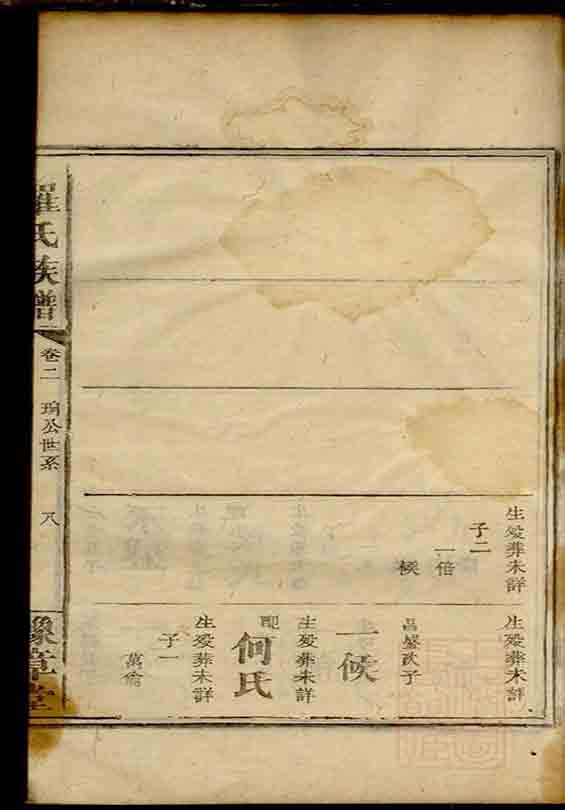 生歿葬未詳
子二
一倍
候
生歿葬未詳
昌盛次子
一候
生歿葬未詳
配
何氏
生歿葬未詳
子一
萬倫
羅氏族譜
卷二
珦公世系
八
豫章堂